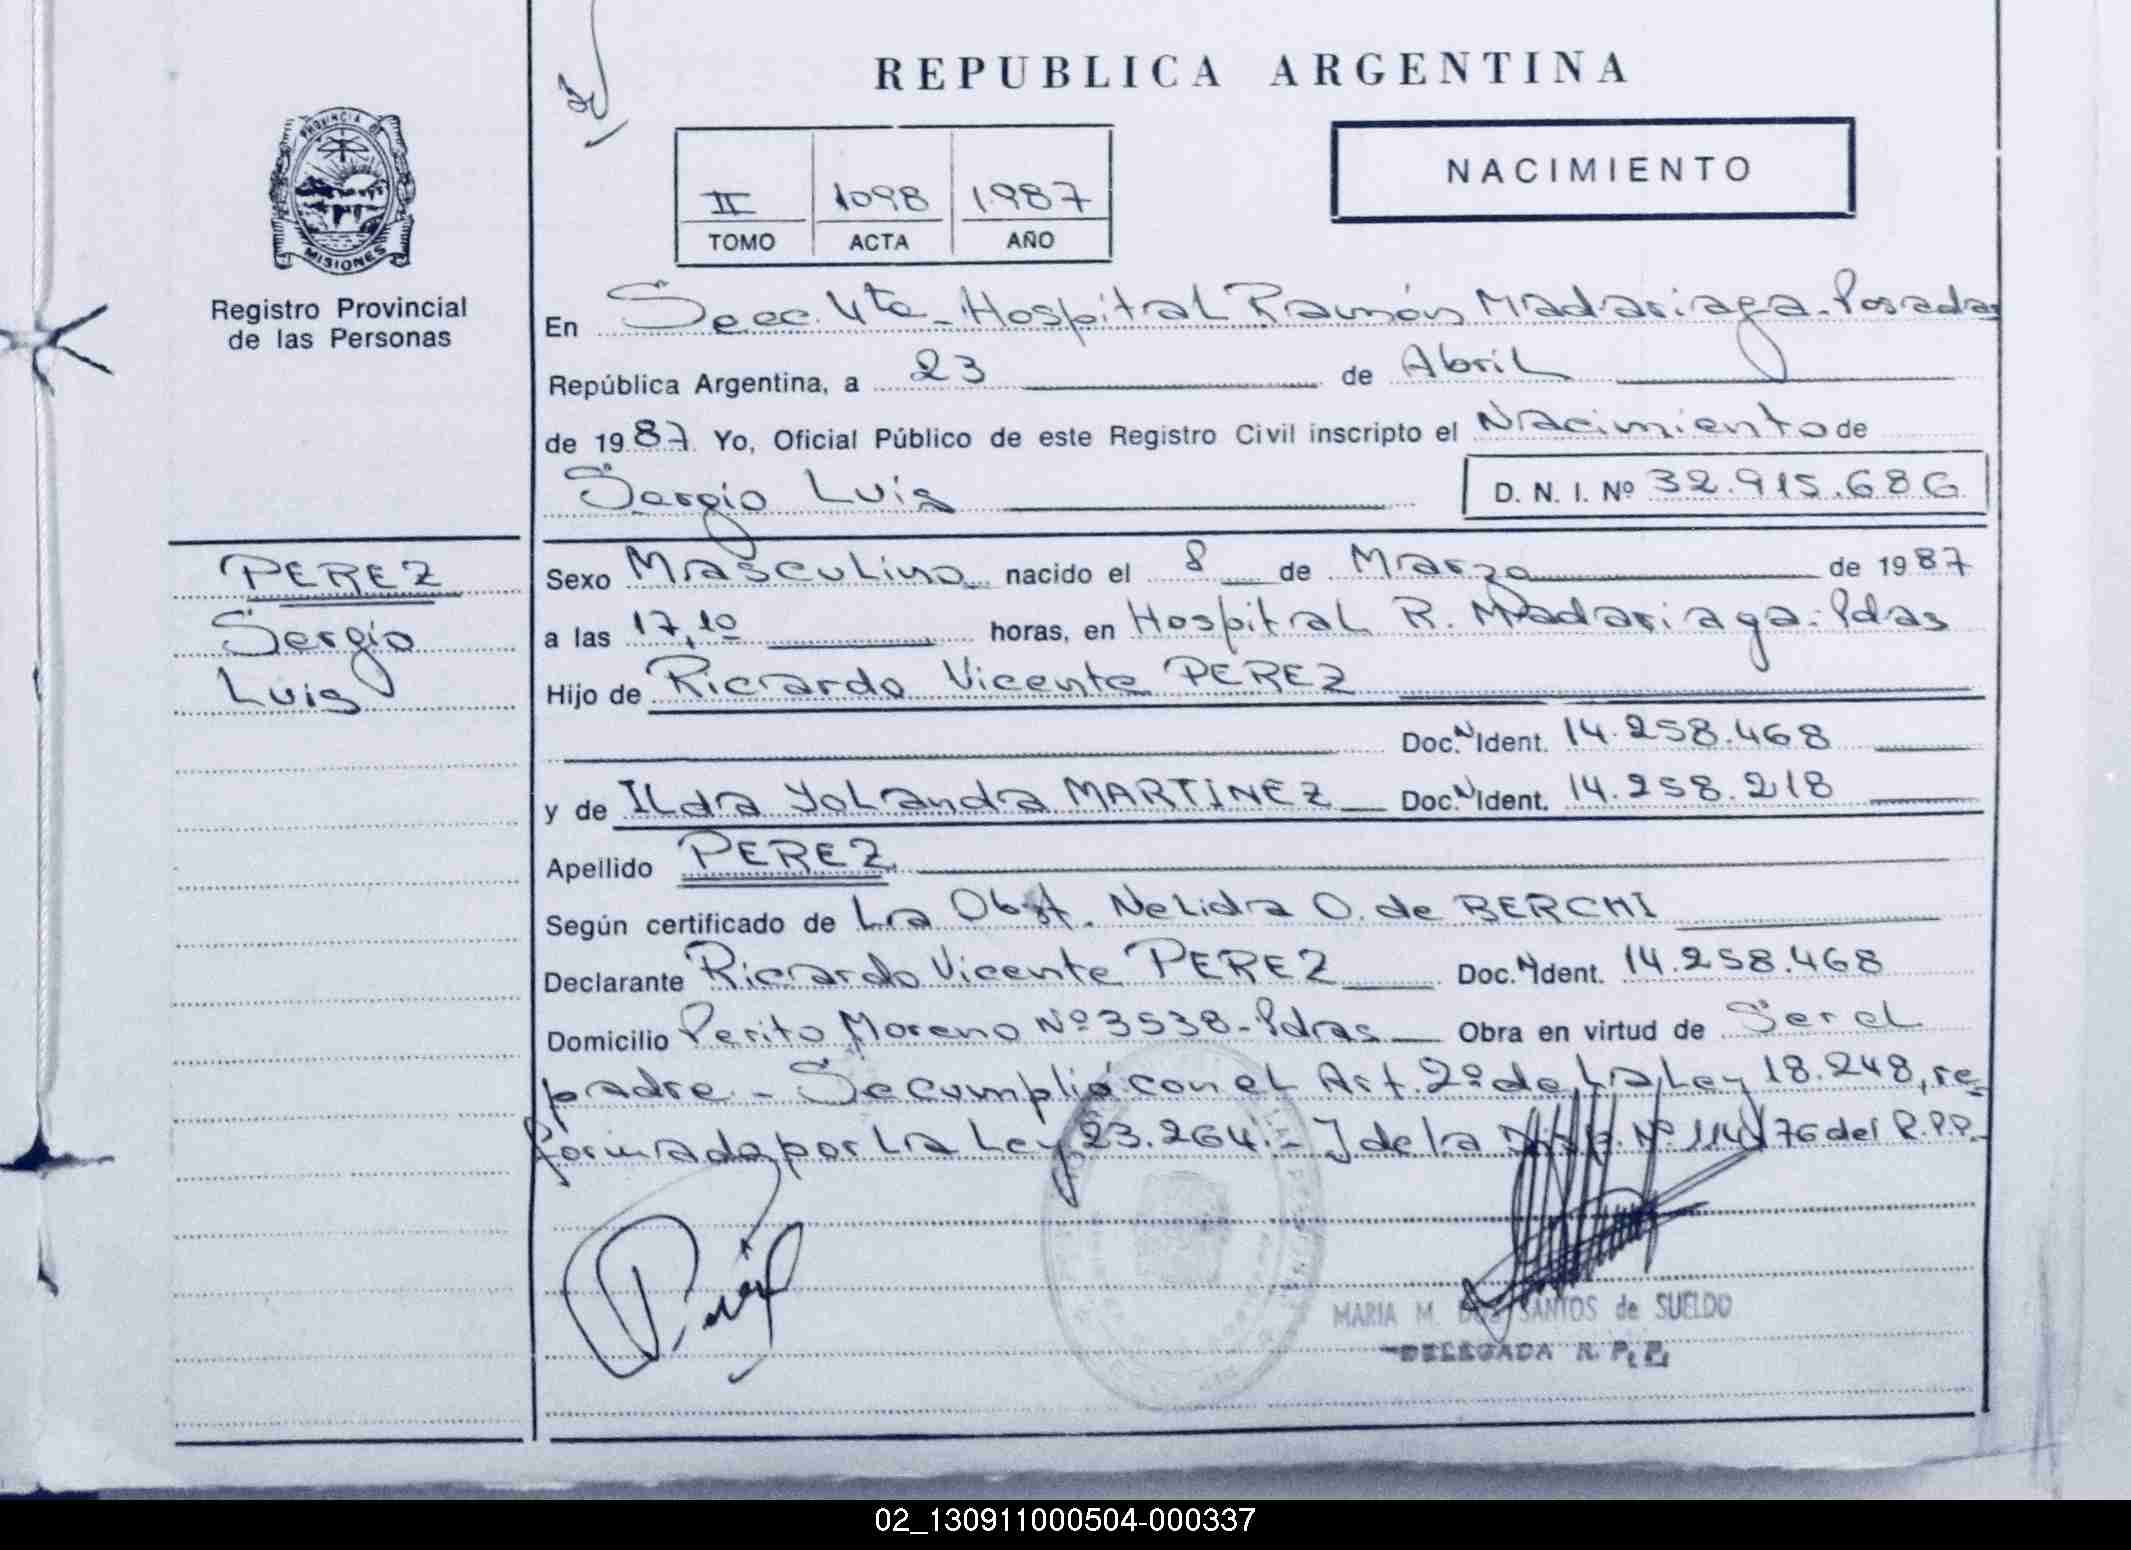 REPUBLICA ARGENTINA
NACIMIENTO
II 1098 1987
TOMO ACTA AÑO
PROVINCIA DE MISIONES
Registro Provincial
de las Personas
PEREZ
Sergio
Luis
En Secc. 4ta - Hospital Ramón Madariaga - Posadas
República Argentina, a 23 de Abril
de 1987 Yo, Oficial Público de este Registro Civil inscripto el Nacimiento de
Sergio Luis D. N. I. Nº 32.915.686
Sexo Masculino nacido el 8 de Marzo de 1987
a las 17,10 horas, en Hospital R. Madariaga - Pdas
Hijo de Ricardo Vicente PEREZ
Doc. N Ident. 14.258.468
y de ILda YoLanda MARTINEZ Doc. N Ident. 14.258.218
Apellido PEREZ
Según certificado de La Obst. Nelida O. de BERCHI
Declarante Ricardo Vicente PEREZ Doc. N Ident. 14.258.468
Domicilio Perito Moreno Nº 3538 - Pdas Obra en virtud de Ser el
padre - Se cumplió con el Art. 2º de La Ley 18.248, re-
formada por La Ley 23.264 - I de la Disp. Nº 114/76 del R.P.P.
MARIA M. DOS SANTOS de SUELDO
DELEGADA R. P. P.
02_130911000504-000337